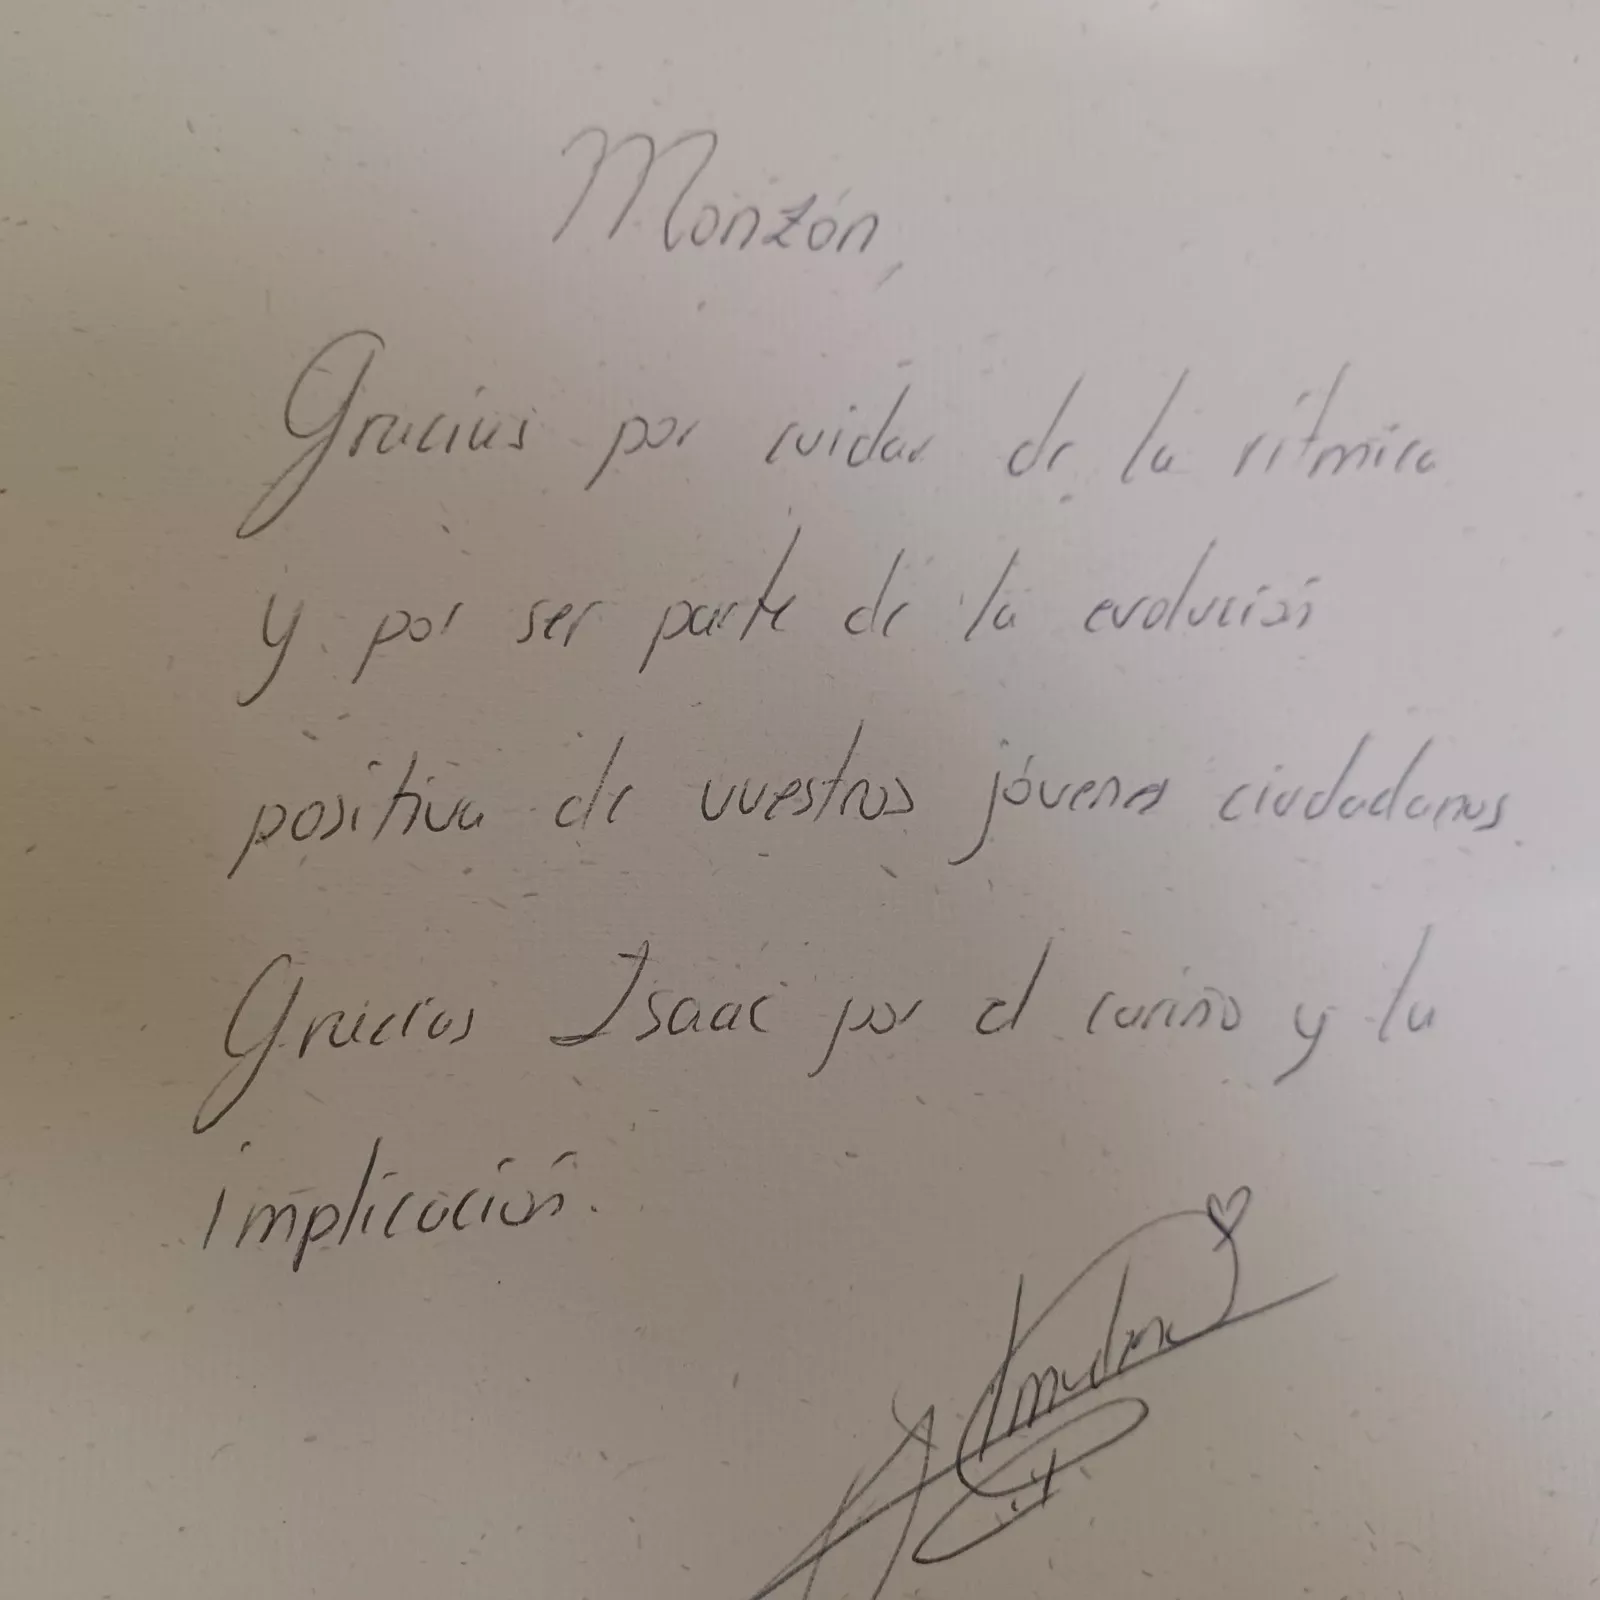 Monzón,
Gracias por cuidar de la rítmica
y por ser parte de la evolución
positiva de vuestros jóvenes ciudadanos.
Gracias Isaac por el cariño y la
implicación.
Almudena